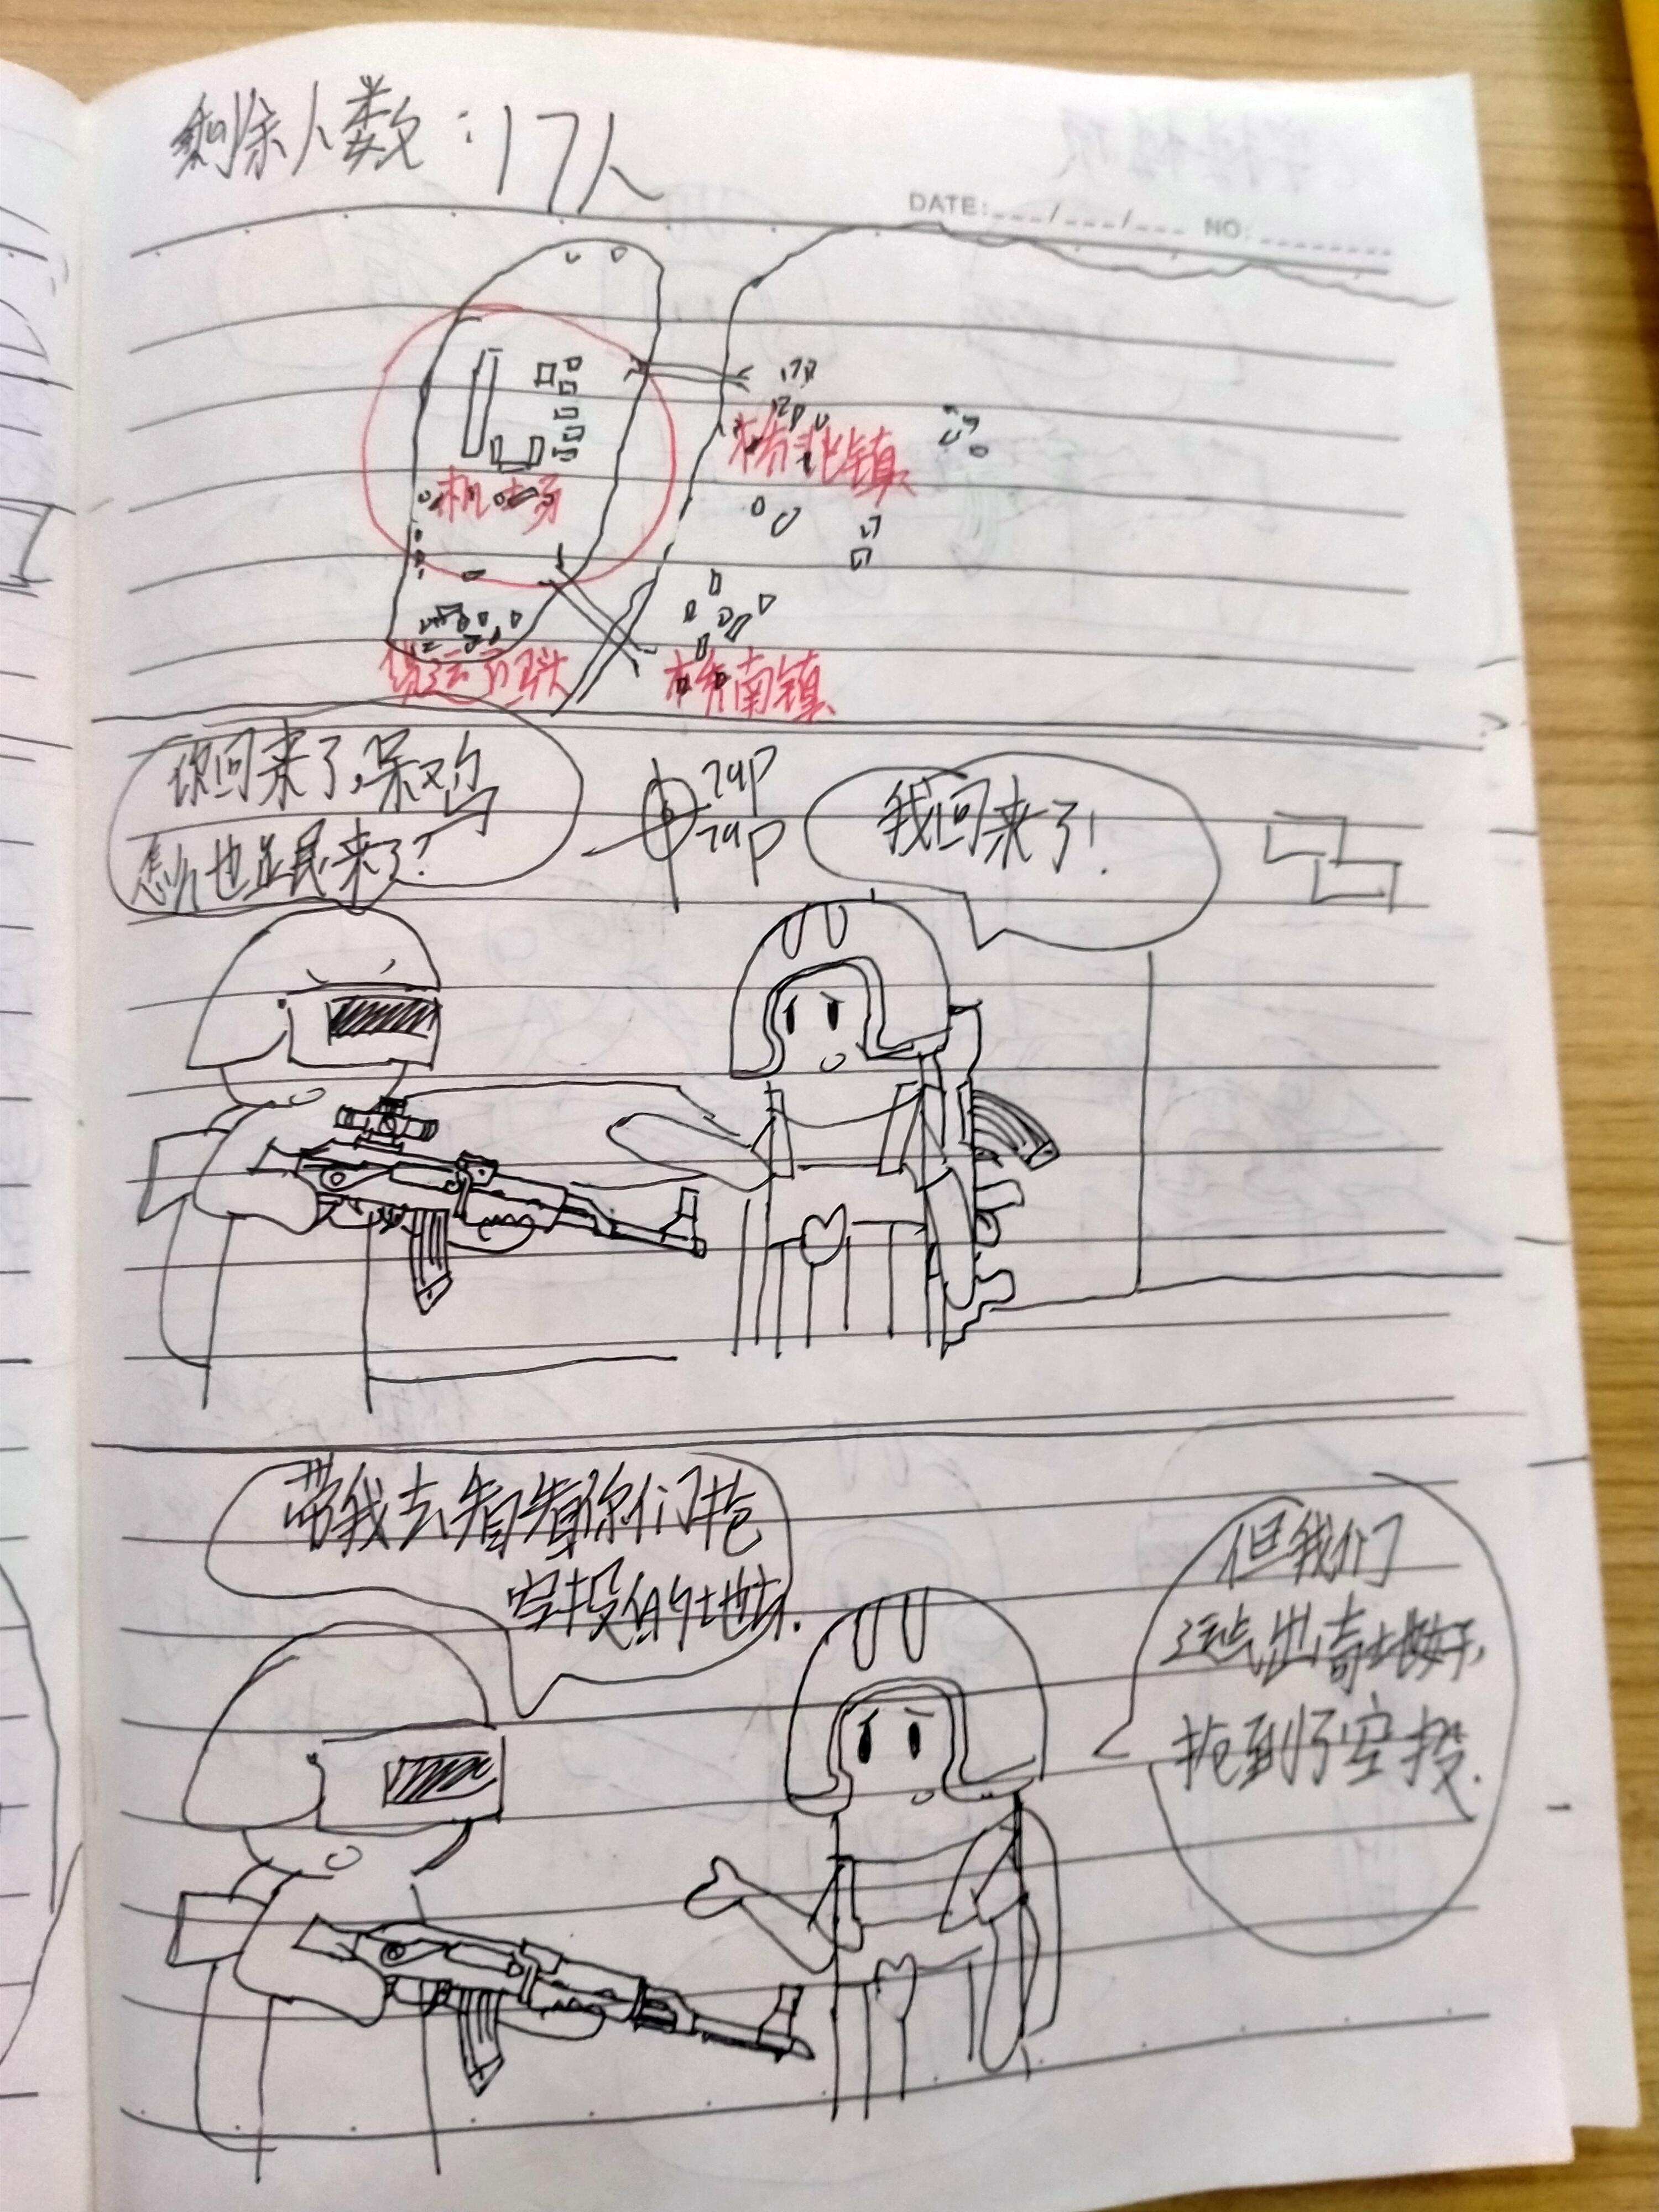 剩余人数：17人
DATE:___/___/___ NO:________
桥北镇
机场
货运码头
桥南镇
你回来了，呆又鸟
怎么也跟来了？
tap
tap
我回来了！
带我去看看你们抢
空投的地方.
但我们
运气出奇地好，
抢到了空投.